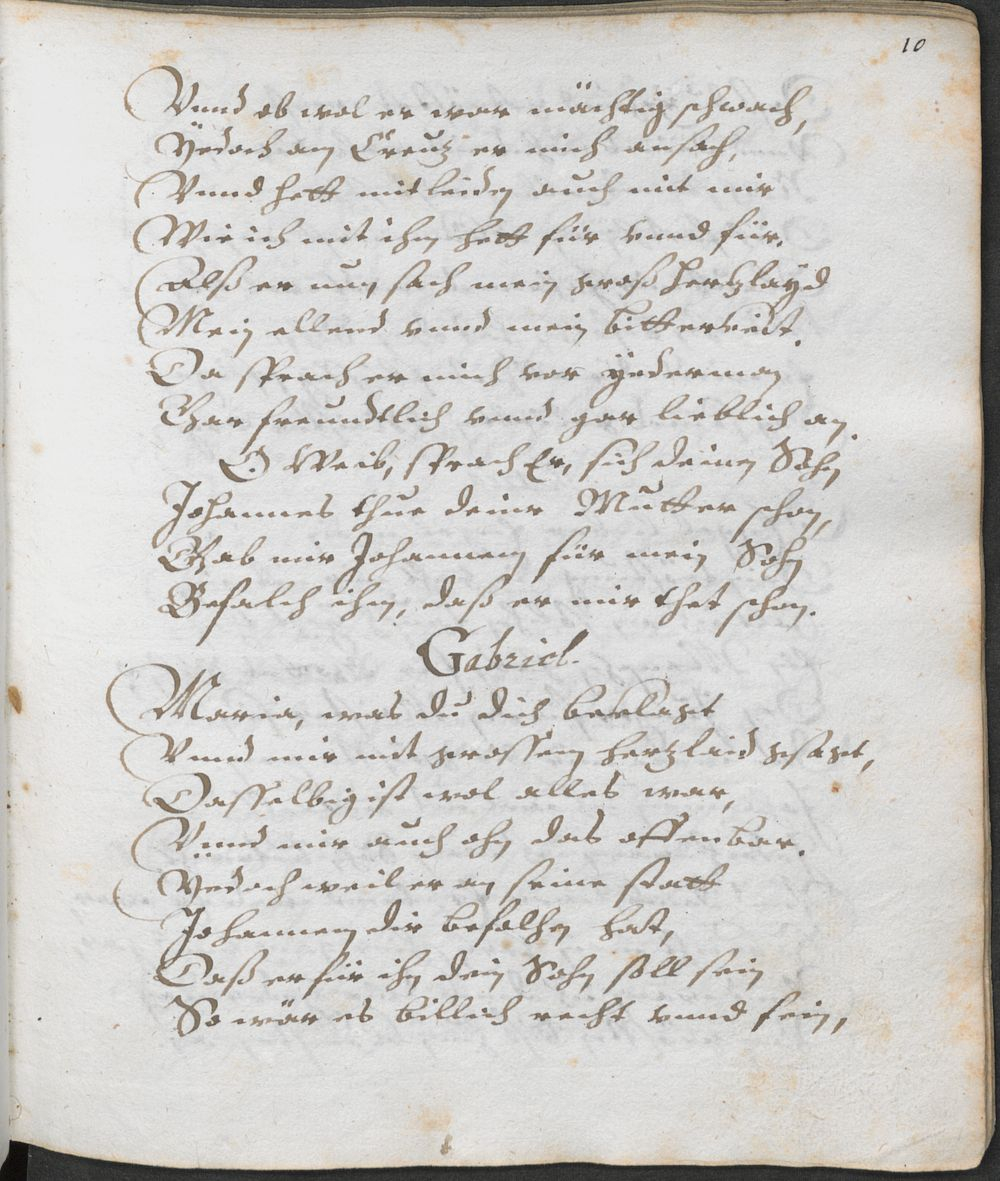 10
Vnnd ob wol er war mächtig schwach,
Yedoch am Creutz er mich ansach,
Vnnd hett mitleiden auch mit mir
Wie ich mit ihm hett für vnnd für.
Alß er nun sach mein groß hertzlayd
Mein ellend vnnd mein bitterkeit.
Da sprach er mich vor yederman
Gar freundtlich vnnd gar lieblich an.
O Weib, sprach Er, sich deinen Sohn
Johannes thue deine Mutter schon,
Gab mir Johannem für mein Sohn
Befalch ihm, daß er mir thet schon.
Gabriel.
Maria, was du dich beclagst
Vnnd mir mit grossem hertzlaid gsagst,
Dasselbig ist wol alles war,
Vnnd mir auch ohn das offenbar.
Yedoch weil er an seine statt
Johannem dir befolhen hat,
Daß er für ihn dein Sohn soll sein
So wär es billich recht vnnd fein,